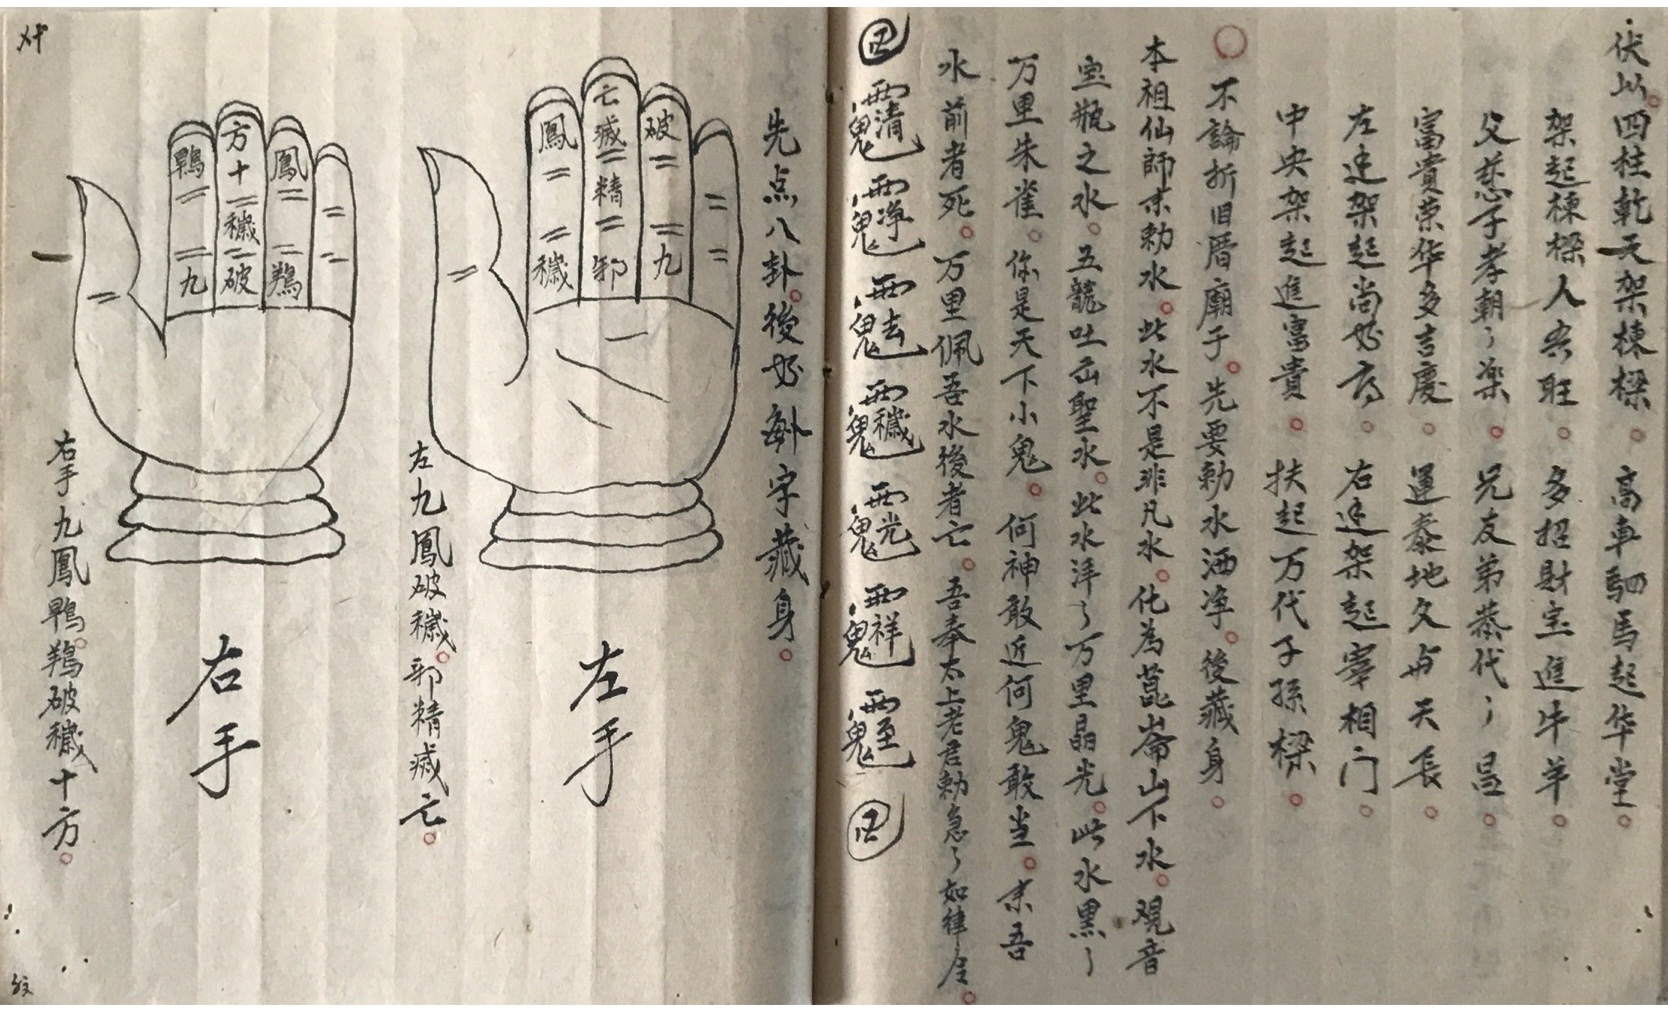 伏以四柱乾天架棟樑。高車駟馬起华堂。
架起棟樑人共旺。多招財宝進牛羊。
父慈子孝朝〻楽。兄友弟恭代〻昌。
富貴荣华多吉慶。運泰地久与天長。
左边架起尚好府。右边架起宰相门。
中央架起進富貴。扶起万代子孫樑。
不論折旧厝廟子。先要勅水洒净。後藏身。
本祖仙師来勅水。此水不是非凡水。化為崑崙山下水。观音
宝瓶之水。五龍吐出聖水。此水洋〻万里晶光。此水黑〻
万里朱雀。你是天下小鬼。何神敢近何鬼敢当。来吾
水前者死。万里佩吾水後者亡。吾奉太上老君勅急〻如律令。
清 净 去 穢 光 祥 至
先点八卦。後好 字藏身。
破 九
亡 滅 精 邪
鳳 穢
左手
左九鳳破穢。邪精滅亡。
鳳 鴹
方 十 穢 破
鴨 九
右手
右手九鳳鴨。鴹破穢十方。